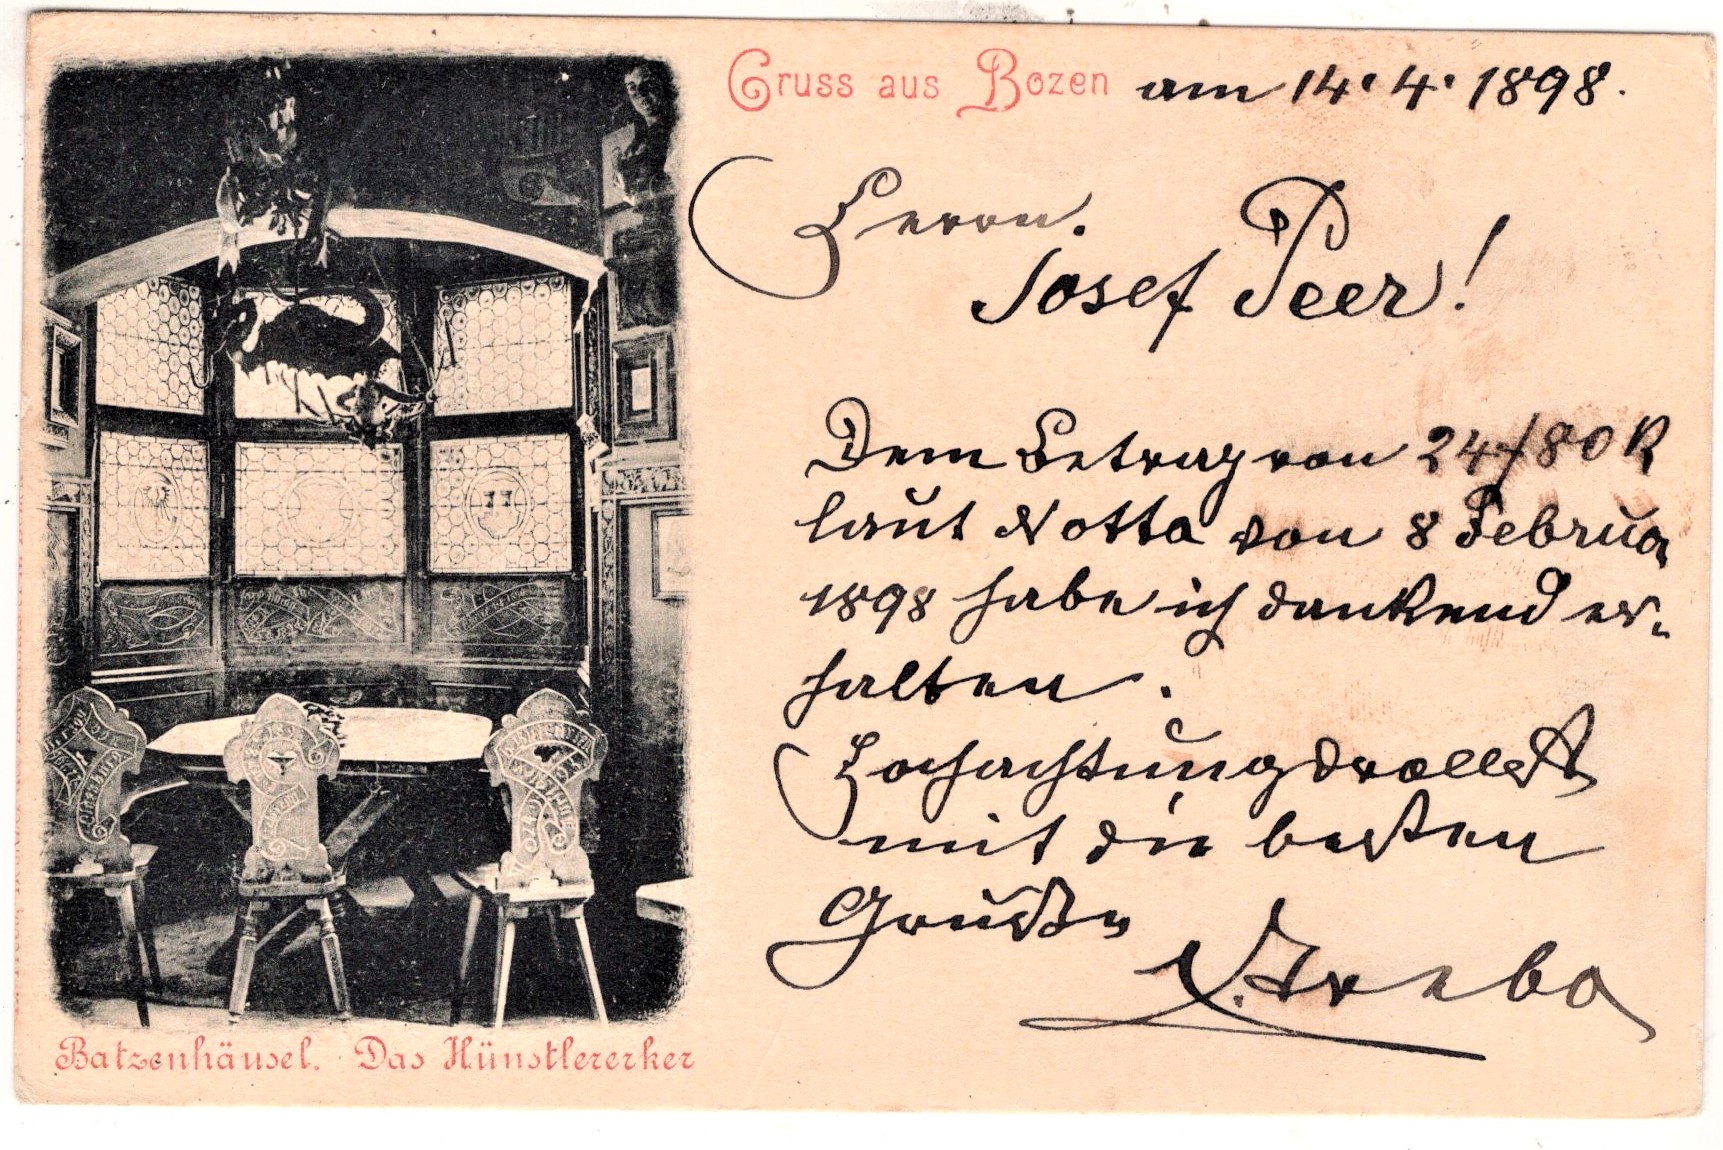 Gruss aus Bozen am 14. 4. 1898.
Herrn.
Josef Peer!
Dem Betrag von 24/80 K
laut Notta von 8 Februa
1898 habe ich dankend er-
halten.
Hochachtungsvollest
mit die besten
Grüße
Batzenhäusel. Das Künstlererker